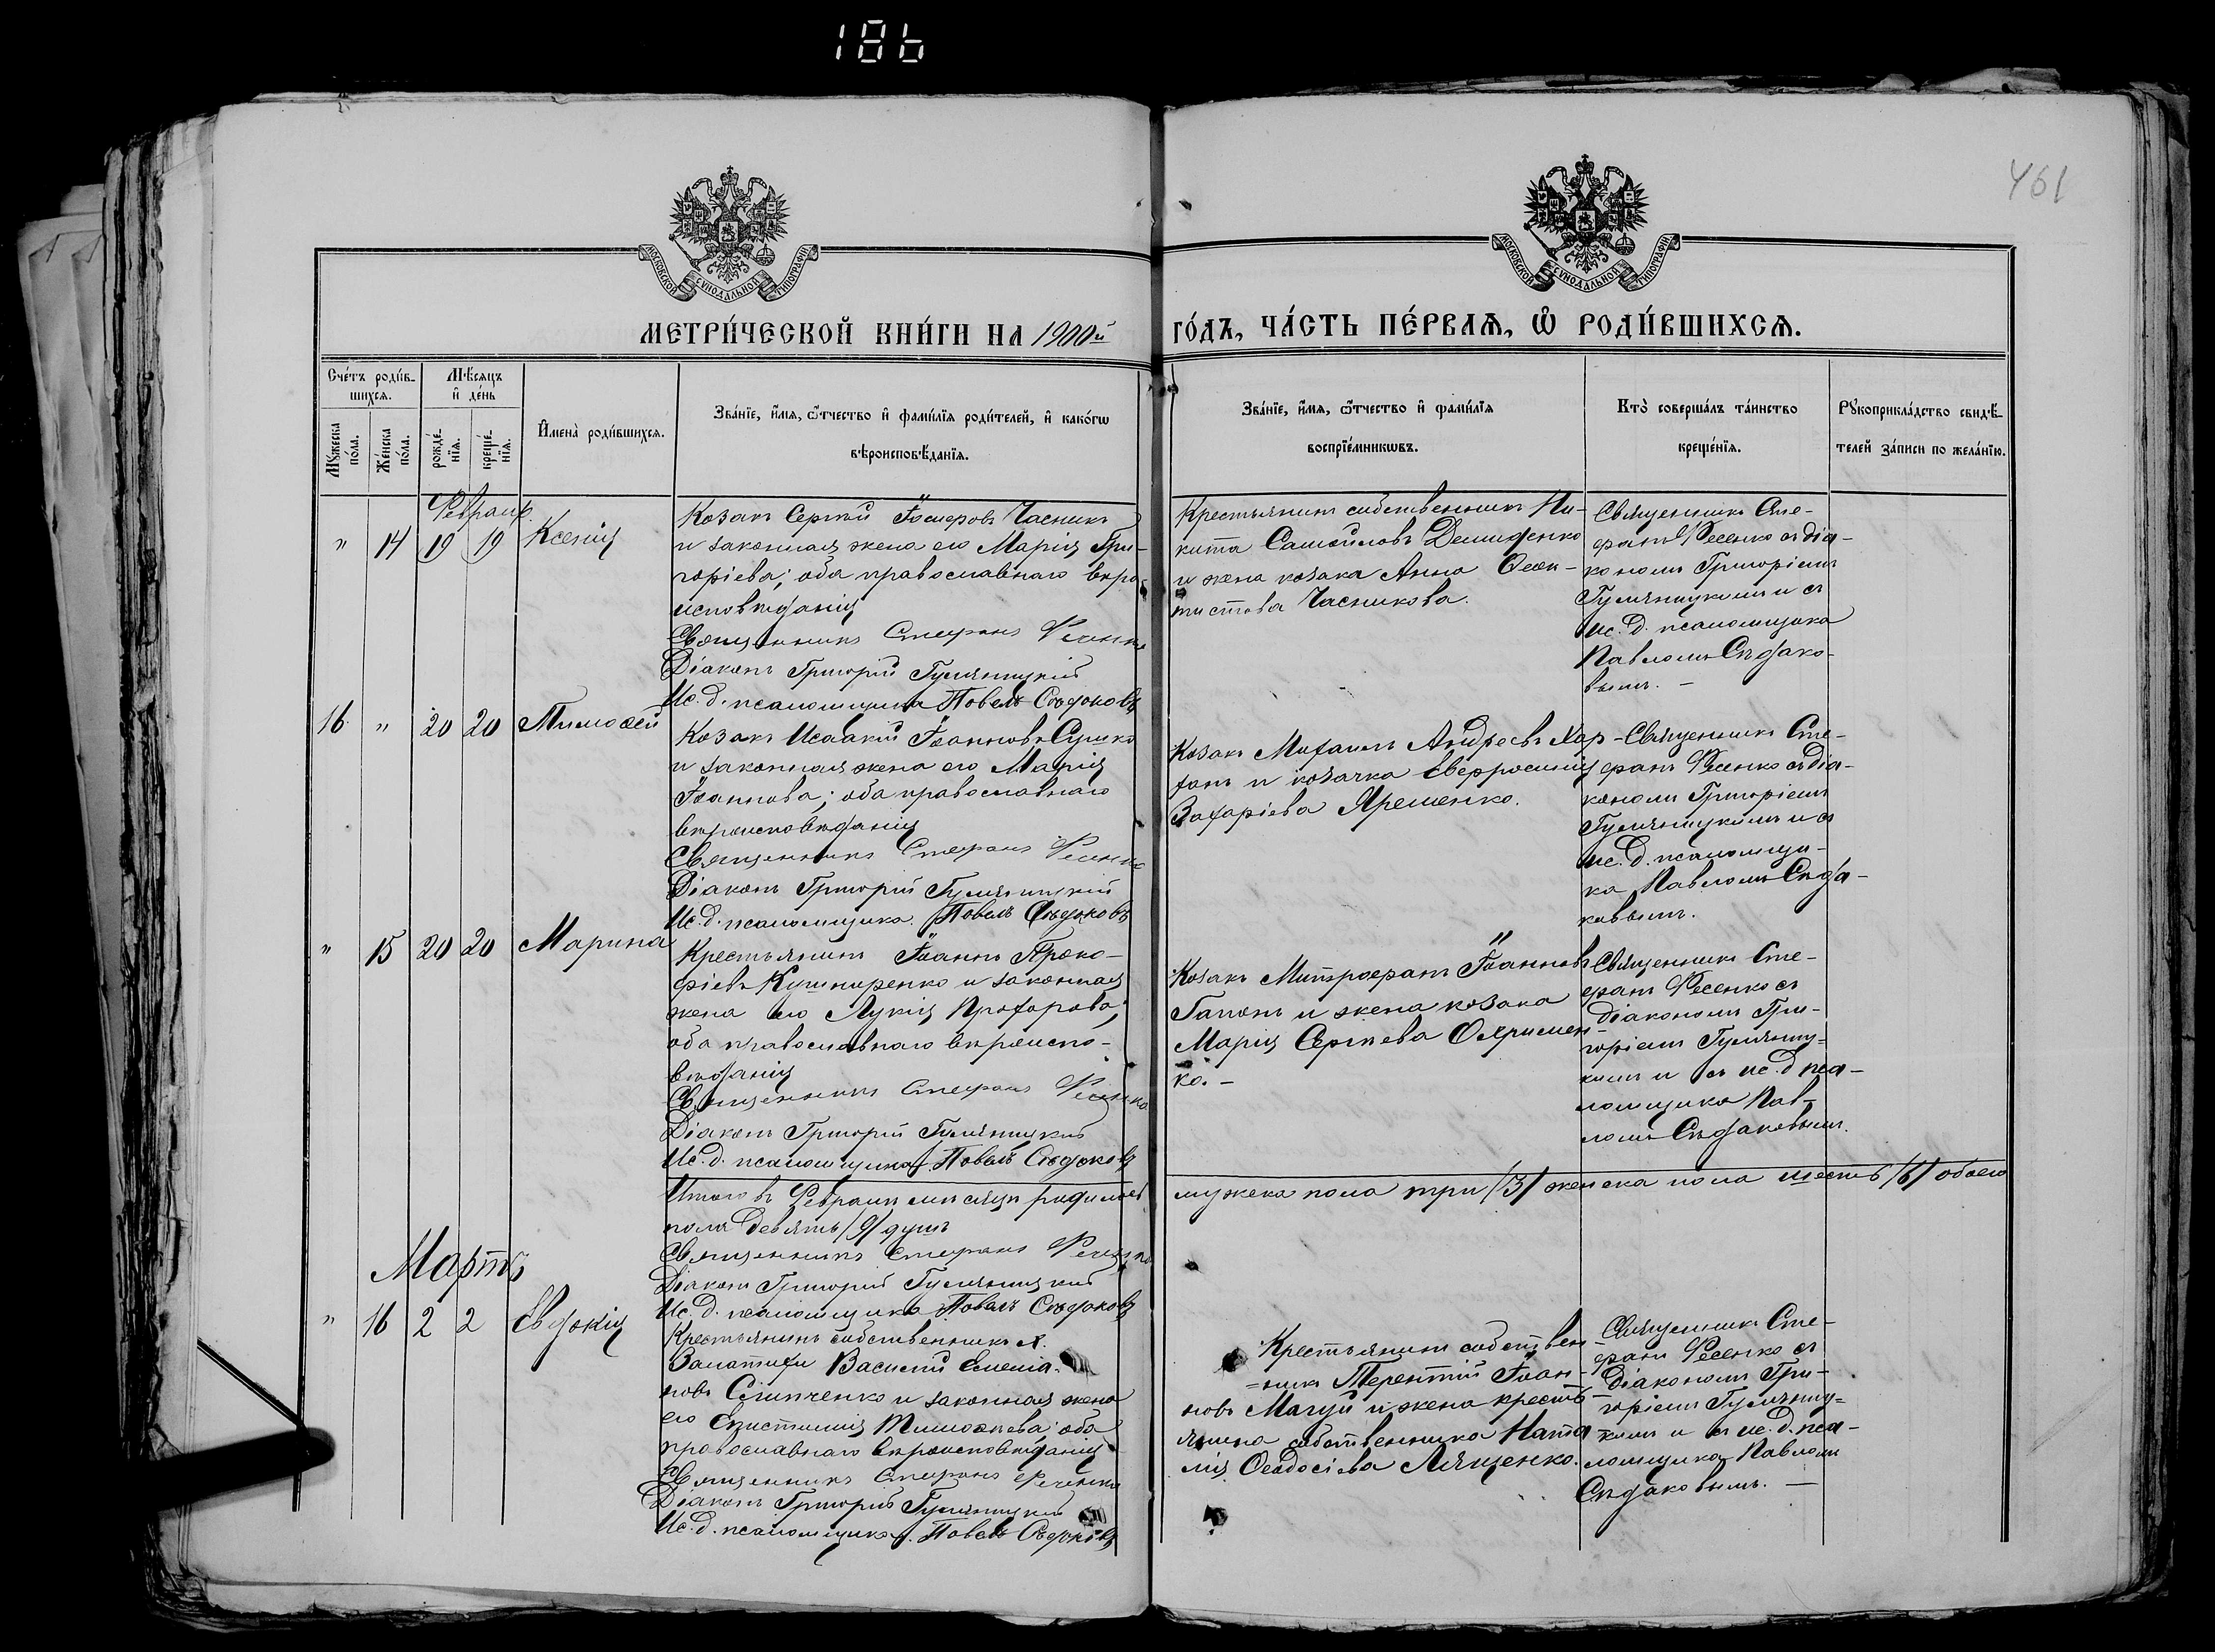 186
461
МОСКОВСКОЙ СѴНОДАЛЬНОЙ ТИПОГРАФІИ
МОСКОВСКОЙ СѴНОДАЛЬНОЙ ТИПОГРАФІИ
МЕТРИ́ЧЕСКОЙ КНИ́ГИ НА 1900й
ГО́ДЪ, ЧА́СТЬ ПЕ́РВАѦ, Ѡ РОДИ́ВШИХСѦ.
Сче́тъ роди́в-
шихсѧ.
Мѣ́сѧцъ
и҆ де́нь
Мꙋ́жеска
по́ла.
Же́нска
по́ла.
рожде́-
нїѧ.
креще́-
нїѧ.
И҆мена̀ роди́вшихсѧ.
Зва́нїе, и҆́мѧ, ѻ҆́тчество и҆ фами́лїѧ роди́телей, и҆ како́гѡ
вѣроисповѣ́данїѧ.
Зва́нїе, и҆́мѧ, ѻ҆́тчество и҆ фами́лїѧ
воспрїе́мникѡвъ.
Кто̀ соверша́лъ та́инство
креще́нїѧ.
Рꙋкоприкла́дство свидѣ́-
телей за́писи по жела́нїю.
Февраль
" 14 19 19 Ксенія
Козакъ Сергѣй Іосифовъ Часникъ
и законная жена его Марія Гри-
горіева; оба православнаго вѣро-
исповѣданія
Священникъ Стефанъ Фесенко
Діаконъ Григорій Гуляницкій
Ис. д. псаломщика Павелъ Сѣдаковъ
Крестьянинъ собственникъ Ни-
кита Самойловъ Демиденко
и жена козака Анна Ѳеок-
тистова Часникова.
Священникъ Сте-
фанъ Фесенко съ діа-
кономъ Григоріемъ
Гуляницкимъ и съ
ис. д. псаломщика
Павломъ Сѣдако-
вымъ. –
16 " 20 20 Тимоѳей
Козакъ Исаакій Іоанновъ Сушко
и законная жена его Марія
Іоаннова; оба православнаго
вѣроисповѣданія
Священникъ Стефанъ Фесенко
Діаконъ Григорій Гуляницкій
Ис. д. псаломщика Павелъ Сѣдаковъ
Козакъ Михаилъ Андреевъ Хар-
и козачка Евфросинія
Захаріева Яременко.
Священникъ Сте-
фанъ Фесенко съ діа-
кономъ Григоріемъ
Гуляницкимъ и съ
ис. д. псаломщи-
ка Павломъ Сѣда-
ковымъ.
" 15 20 20 Марина
Крестьянинъ Іоаннъ Проко-
фіевъ Кушниренко и законная
жена его Лукія Прохорова;
оба православнаго вѣроиспо-
вѣданія
Священникъ Стефанъ Фесенко
Діаконъ Григорій Гуляницкій
Ис. д. псаломщика Павелъ Сѣдаковъ
Козакъ Митрофанъ Іоанновъ
Гапонъ и жена козака
Марія Сергѣева Охримен-
ко. –
Священникъ Сте-
фанъ Фесенко съ
діакономъ Гри-
горіемъ Гуляниц=
кимъ и съ ис. д. пса-
ломщика Пав-
ломъ Сѣдаковымъ.
Итого въ Февралѣ мѣсяцѣ родилось
мужеска пола три /3/ женска пола шесть /6/ обоего
пола девять /9/ душъ
Священникъ Стефанъ Фесенко
Діаконъ Григорій Гуляницкій
Ис. д. псаломщика Павелъ Сѣдаковъ
Мартъ
" 16 2 2 Евдокія
Крестьянинъ собственникъ х.
Василій Емеліа-
новъ и законная жена
его Тимоѳеева; оба
православнаго вѣроисповѣданія
Священникъ Стефанъ Фесенко
Діаконъ Григорій Гуляницкій
Ис. д. псаломщика Павелъ Сѣдаковъ
Крестьянинъ собствен-
=никъ Терентій Іоан-
новъ Магуй и жена кресть-
янина собственника Ната-
лія Ѳеодосіева Лященко.
Священникъ Сте-
фанъ Фесенко съ
діакономъ Гри-
горіемъ Гуляниц=
кимъ и съ ис. д. пса-
ломщика Павломъ
Сѣдаковымъ. –